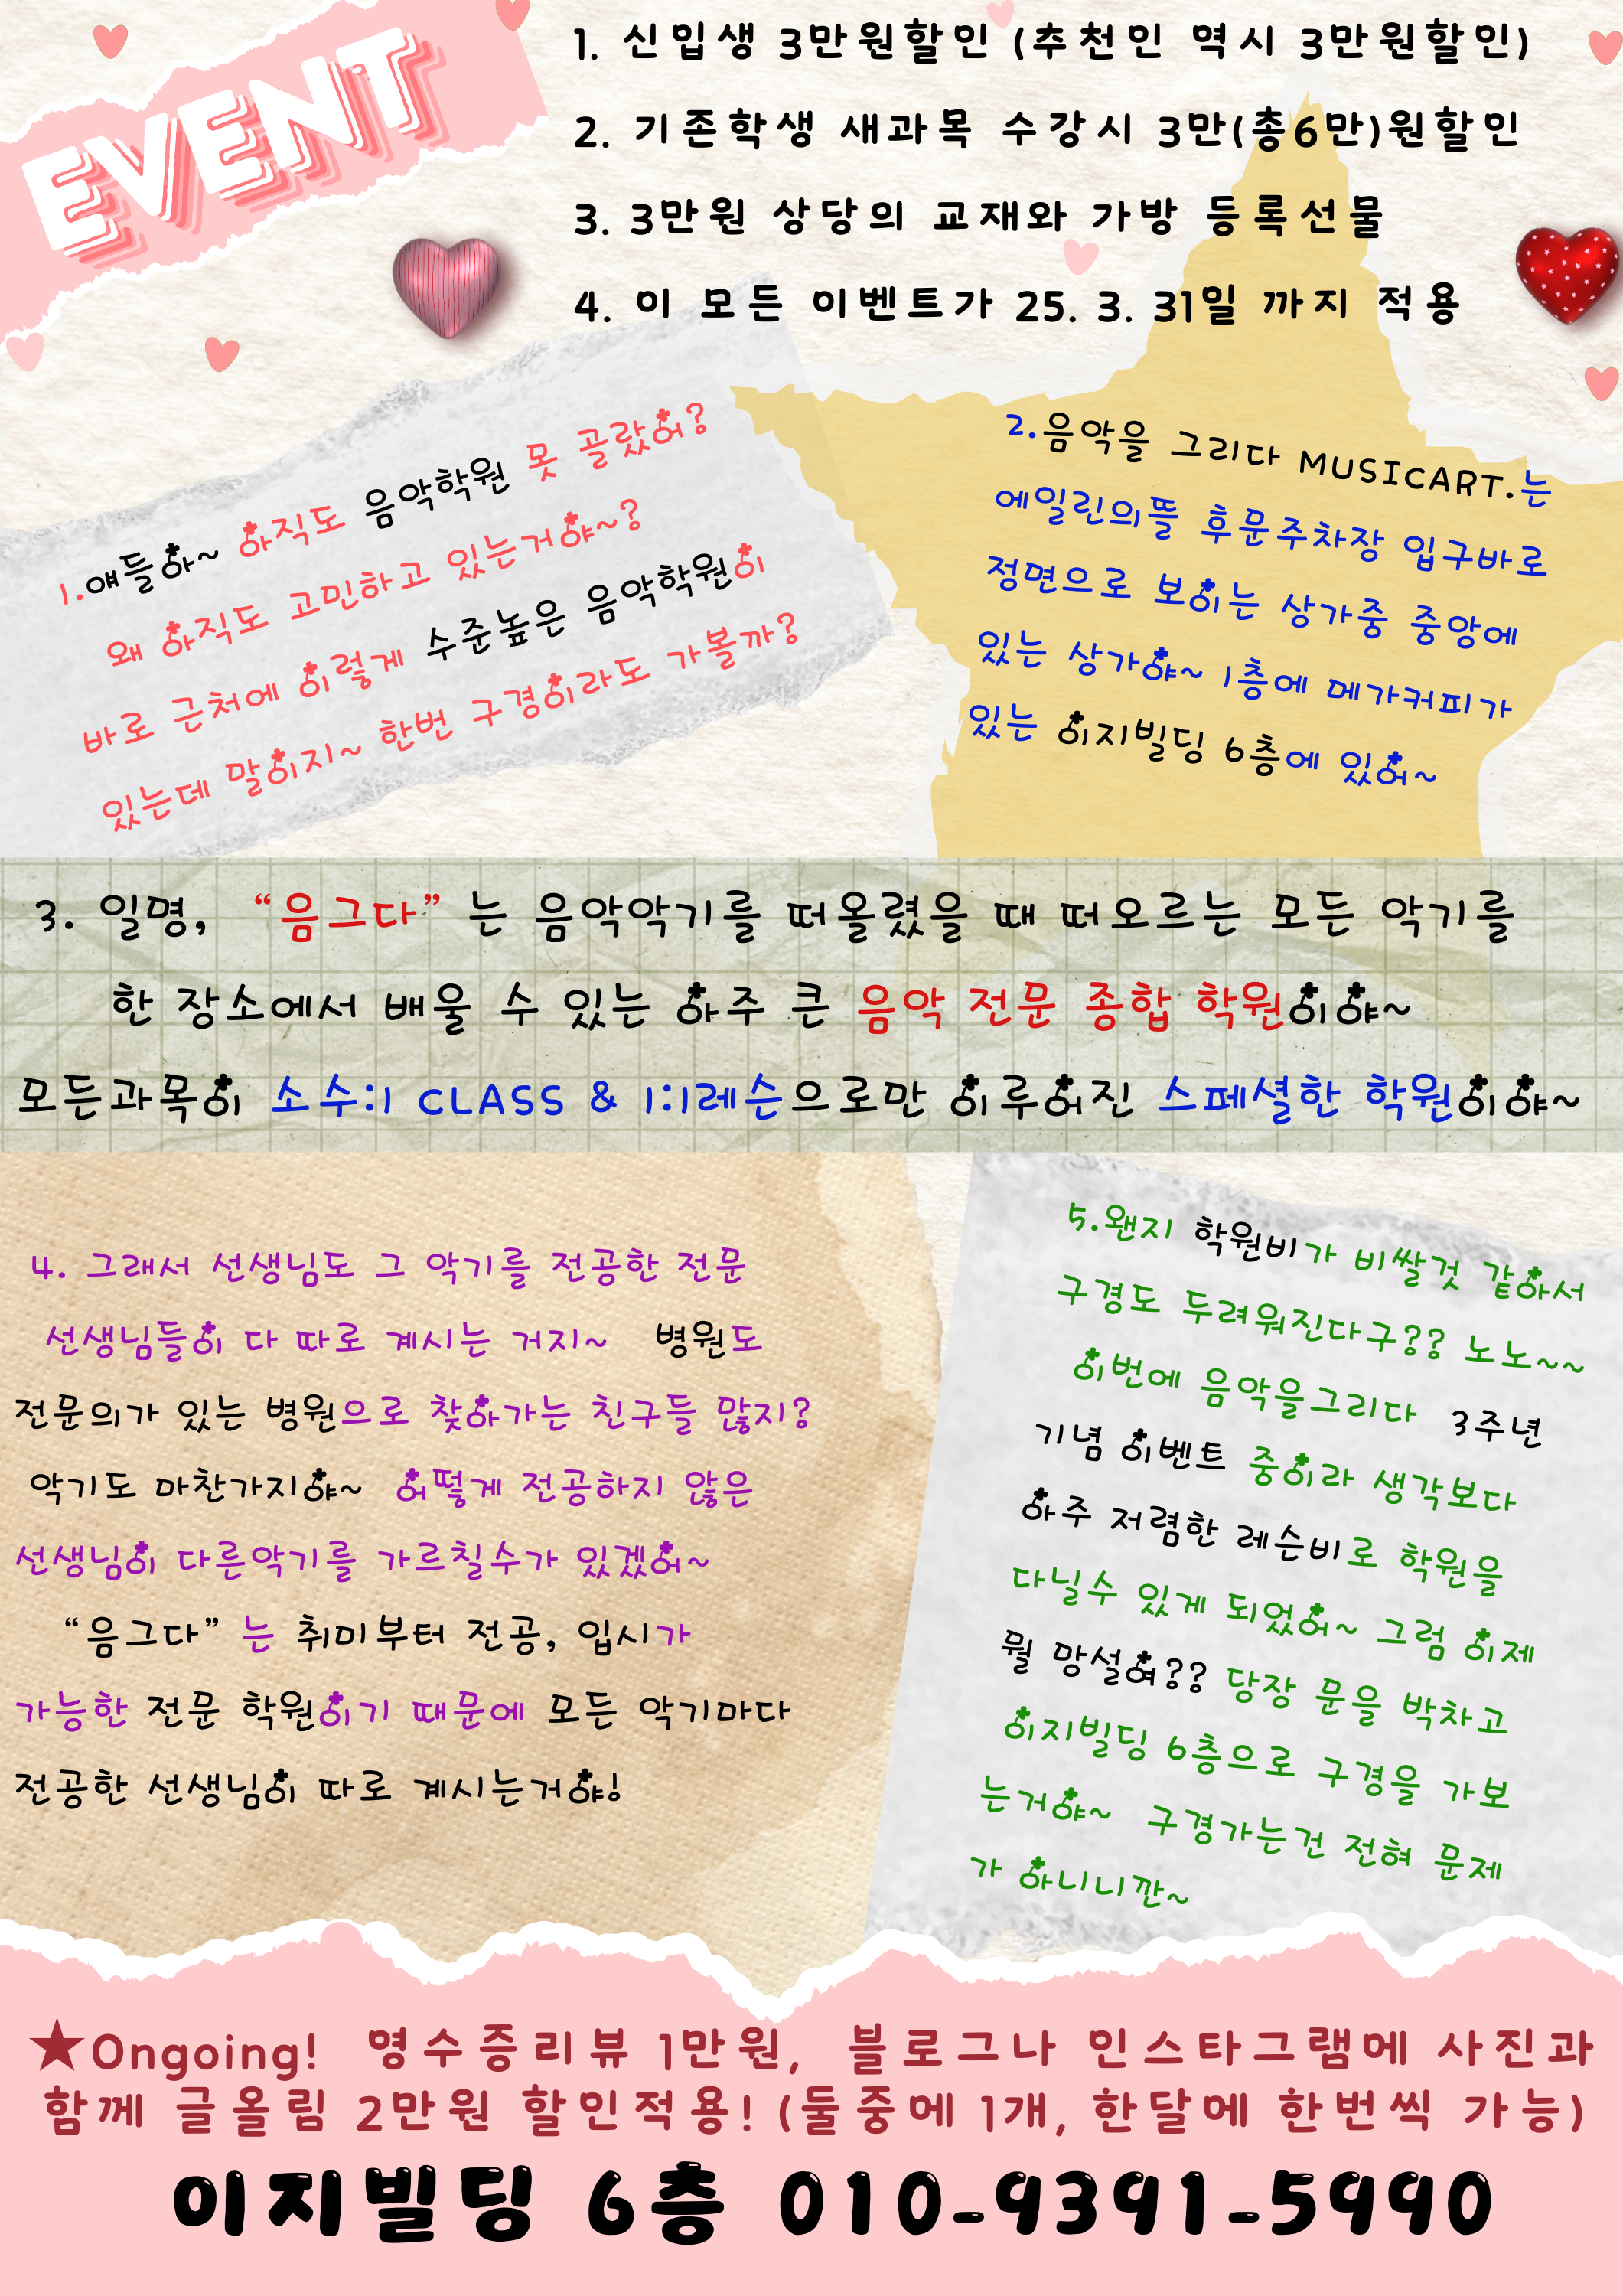 EVENT
1. 신입생 3만원할인 (추천인 역시 3만원할인)
2. 기존학생 새과목 수강시 3만(총6만)원할인
3. 3만원 상당의 교재와 가방 등록선물
4. 이 모든 이벤트가 25. 3. 31일 까지 적용
1.얘들아~ 아직도 음악학원 못 골랐어?
왜 아직도 고민하고 있는거야~?
바로 근처에 이렇게 수준높은 음악학원이
있는데 말이지~ 한번 구경이라도 가볼까?
2.음악을 그리다 MUSICART.는
에일린의뜰 후문주차장 입구바로
정면으로 보이는 상가중 중앙에
있는 상가야~ 1층에 메가커피가
있는 이지빌딩 6층에 있어~
3. 일명, “음그다” 는 음악악기를 떠올렸을 때 떠오르는 모든 악기를
한 장소에서 배울 수 있는 아주 큰 음악 전문 종합 학원이야~
모든과목이 소수:1 CLASS & 1:1레슨으로만 이루어진 스페셜한 학원이야~
4. 그래서 선생님도 그 악기를 전공한 전문
선생님들이 다 따로 계시는 거지~ 병원도
전문의가 있는 병원으로 찾아가는 친구들 많지?
악기도 마찬가지야~ 어떻게 전공하지 않은
선생님이 다른악기를 가르칠수가 있겠어~
“음그다” 는 취미부터 전공, 입시가
가능한 전문 학원이기 때문에 모든 악기마다
전공한 선생님이 따로 계시는거야!
5.왠지 학원비가 비쌀것 같아서
구경도 두려워진다구?? 노노~~
이번에 음악을그리다 3주년
기념 이벤트 중이라 생각보다
아주 저렴한 레슨비로 학원을
다닐수 있게 되었어~ 그럼 이제
뭘 망설여?? 당장 문을 박차고
이지빌딩 6층으로 구경을 가보
는거야~ 구경가는건 전혀 문제
가 아니니깐~
★Ongoing! 영수증리뷰 1만원, 블로그나 인스타그램에 사진과
함께 글올림 2만원 할인적용! (둘중에 1개, 한달에 한번씩 가능)
이지빌딩 6층 010-9391-5990